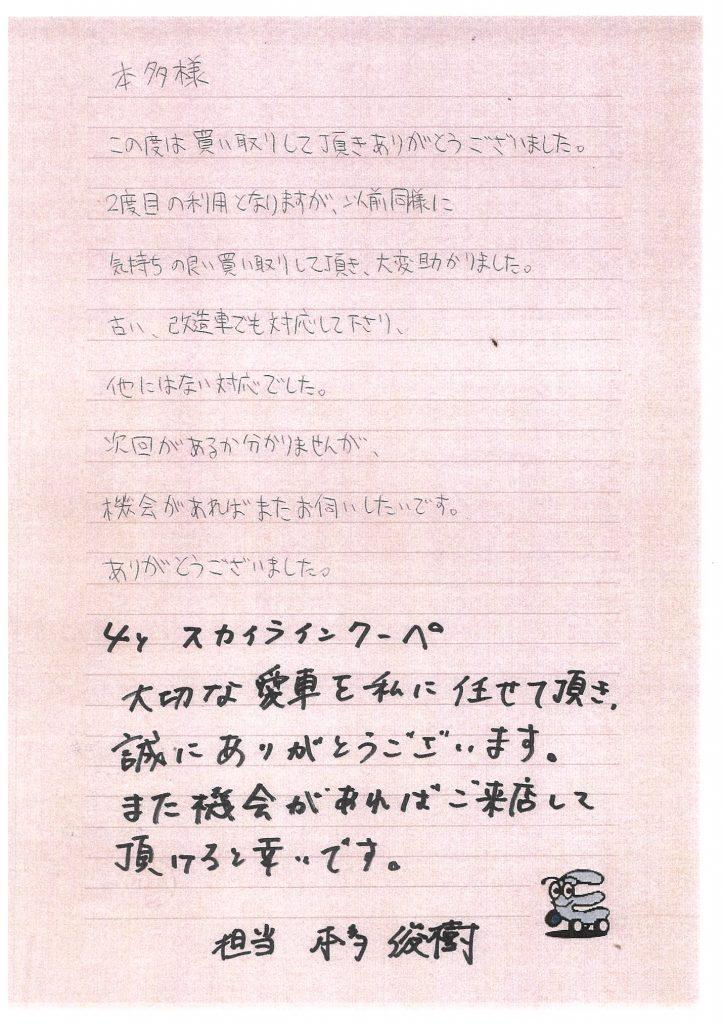 本多様
この度は買い取りして頂きありがとうございました。
2度目の利用となりますが、以前同様に
気持ちの良い買い取りして頂き、大変助かりました。
古い、改造車でも対応して下さり、
他にはない対応でした。
次回があるか分かりませんが、
機会があればまたお伺いしたいです。
ありがとうございました。
4y スカイラインクーペ
大切な愛車を私に任せて頂き、
誠にありがとうございます。
また機会があればご来店して
頂けると幸いです。
担当 本多 俊樹